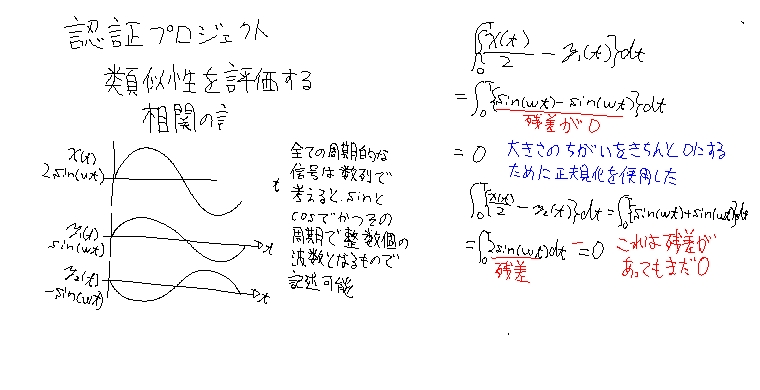 認証プロジェクト
類似性を評価する
相関の話
x(t)
2sin(wt)
t
y₁(t)
sin(wt)
t
y₂(t)
-sin(wt)
t
全ての周期的な
信号は数列で
考えると、sinと
cosでかつその
周期で整数個の
波数となるもので
記述可能
∫₀ᵀ{x(t)/2 - y₁(t)}dt
=∫₀ᵀ{sin(wt)-sin(wt)}dt
残差が0
=0 大きさのちがいをきちんと0にする
ために正規化を使用した
∫₀ᵀ{x(t)/2 - y₂(t)}dt=∫₀ᵀ{sin(wt)+sin(wt)}dt
=∫₀ᵀ2sin(wt)dt =0 これは残差が
残差 あってもまだ0